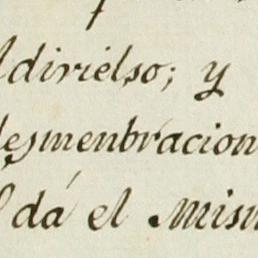 ldiviélso; y
desmenbracion
dá el Mism